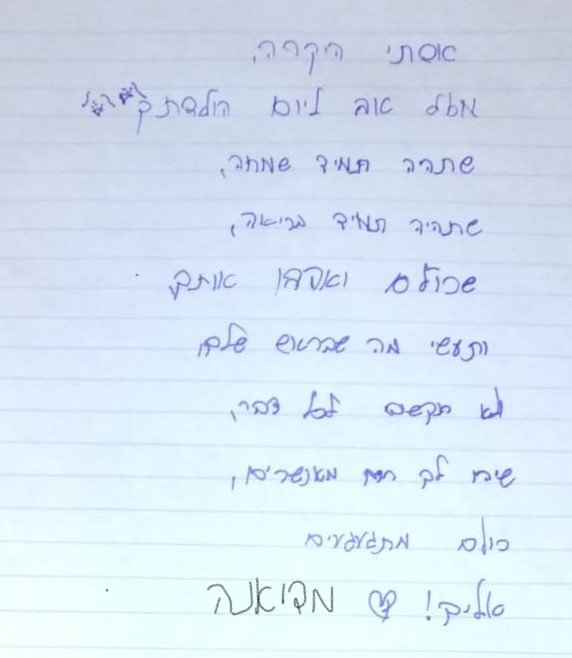 אסתי היקרה,
מזל טוב ליום הולדתך
שתהיה תמיד שמחה,
שתהיה תמיד בריאה,
שכולם יאהבו אותך,
ותעשי מה שבראש שלך,
לא תקשיבי לכל דבר,
שיהיו לך מאנשים,
כולם מתגעגעים
אליך! מדיאנה